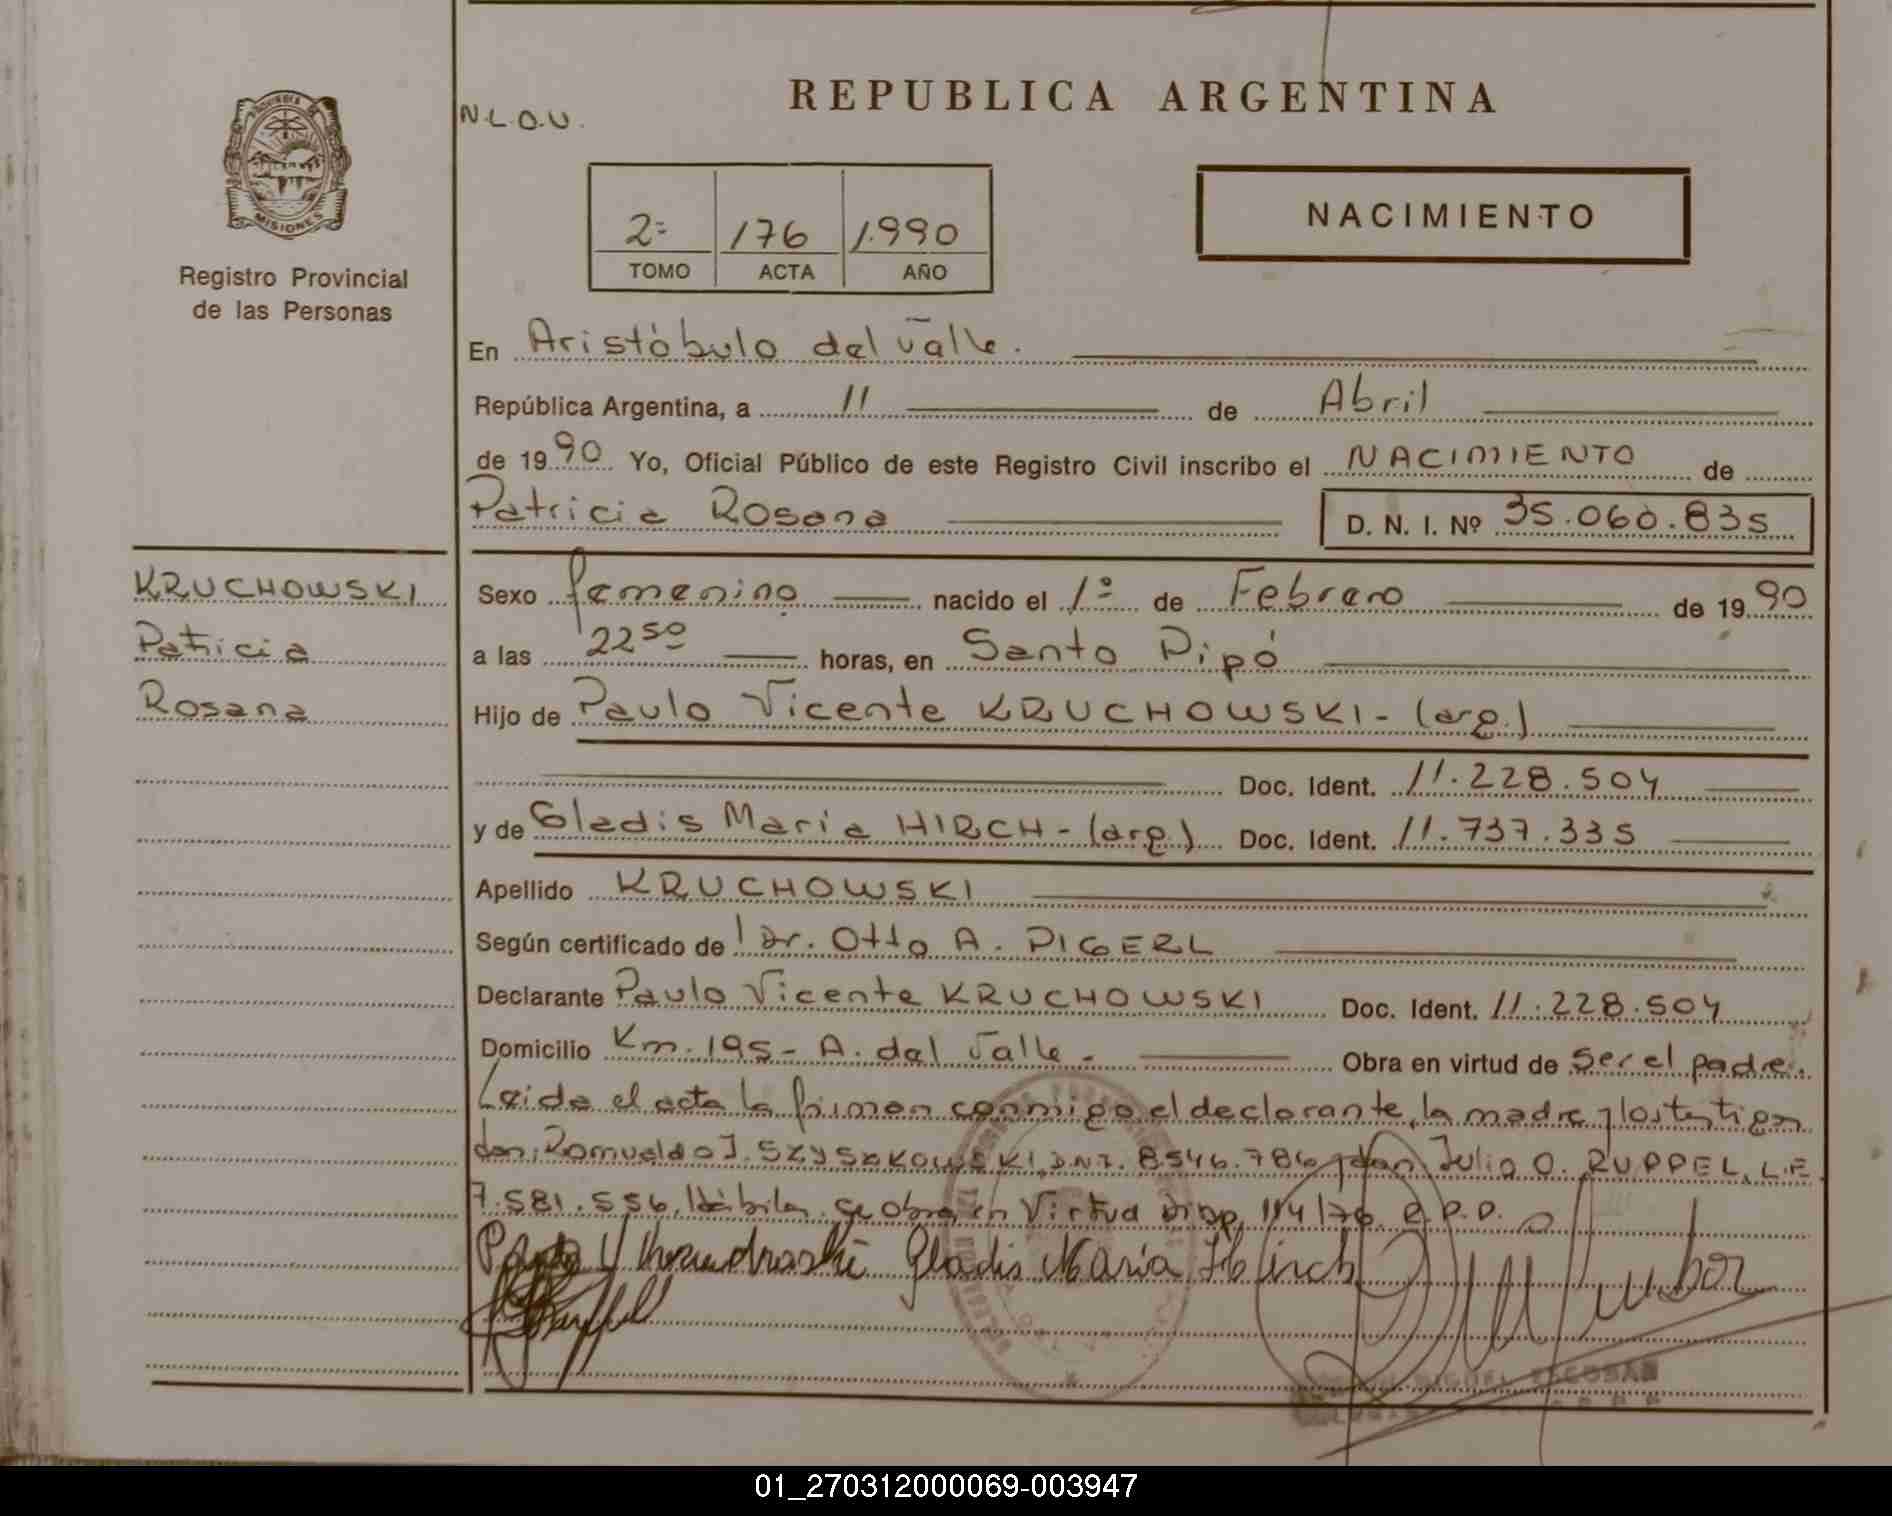 REPUBLICA ARGENTINA
N.L.O.U.
PROVINCIA DE
MISIONES
Registro Provincial
de las Personas
2= 176 1.990
TOMO ACTA AÑO
NACIMIENTO
En Aristóbulo del Valle.
República Argentina, a 11 de Abril
de 1990 Yo, Oficial Público de este Registro Civil inscribo el NACIMIENTO de
Patricia Rosana D. N. I. Nº 35.060.835
KRUCHOWSKI
Patricia
Rosana
Sexo femenino nacido el 1º de Febrero de 1990
a las 22 50 horas, en Santo Pipó
Hijo de Paulo Vicente KRUCHOWSKI - (arg.)
Doc. Ident. 11.228.504
y de Gladis Maria HIRCH - (arg.) Doc. Ident. 11.737.335
Apellido KRUCHOWSKI
Según certificado de Dr. Otto A. PIGERL
Declarante Paulo Vicente KRUCHOWSKI Doc. Ident. 11.228.504
Domicilio Km. 195 - A. del Valle - Obra en virtud de Ser el padre.
Leida el acta la firman conmigo el declarante, la madre y los testigos
don; Romualdo J. SZYSZKOWSKI, D.N.I. 8.546.786 y don Julio O. RUPPEL, L.E.
7.581.556, Hábiles. Se obra en Virtud Disp. 114/76 R.P.P.
Gladis Maria Hirch
MIGUEL ESCOBAR
01_270312000069-003947